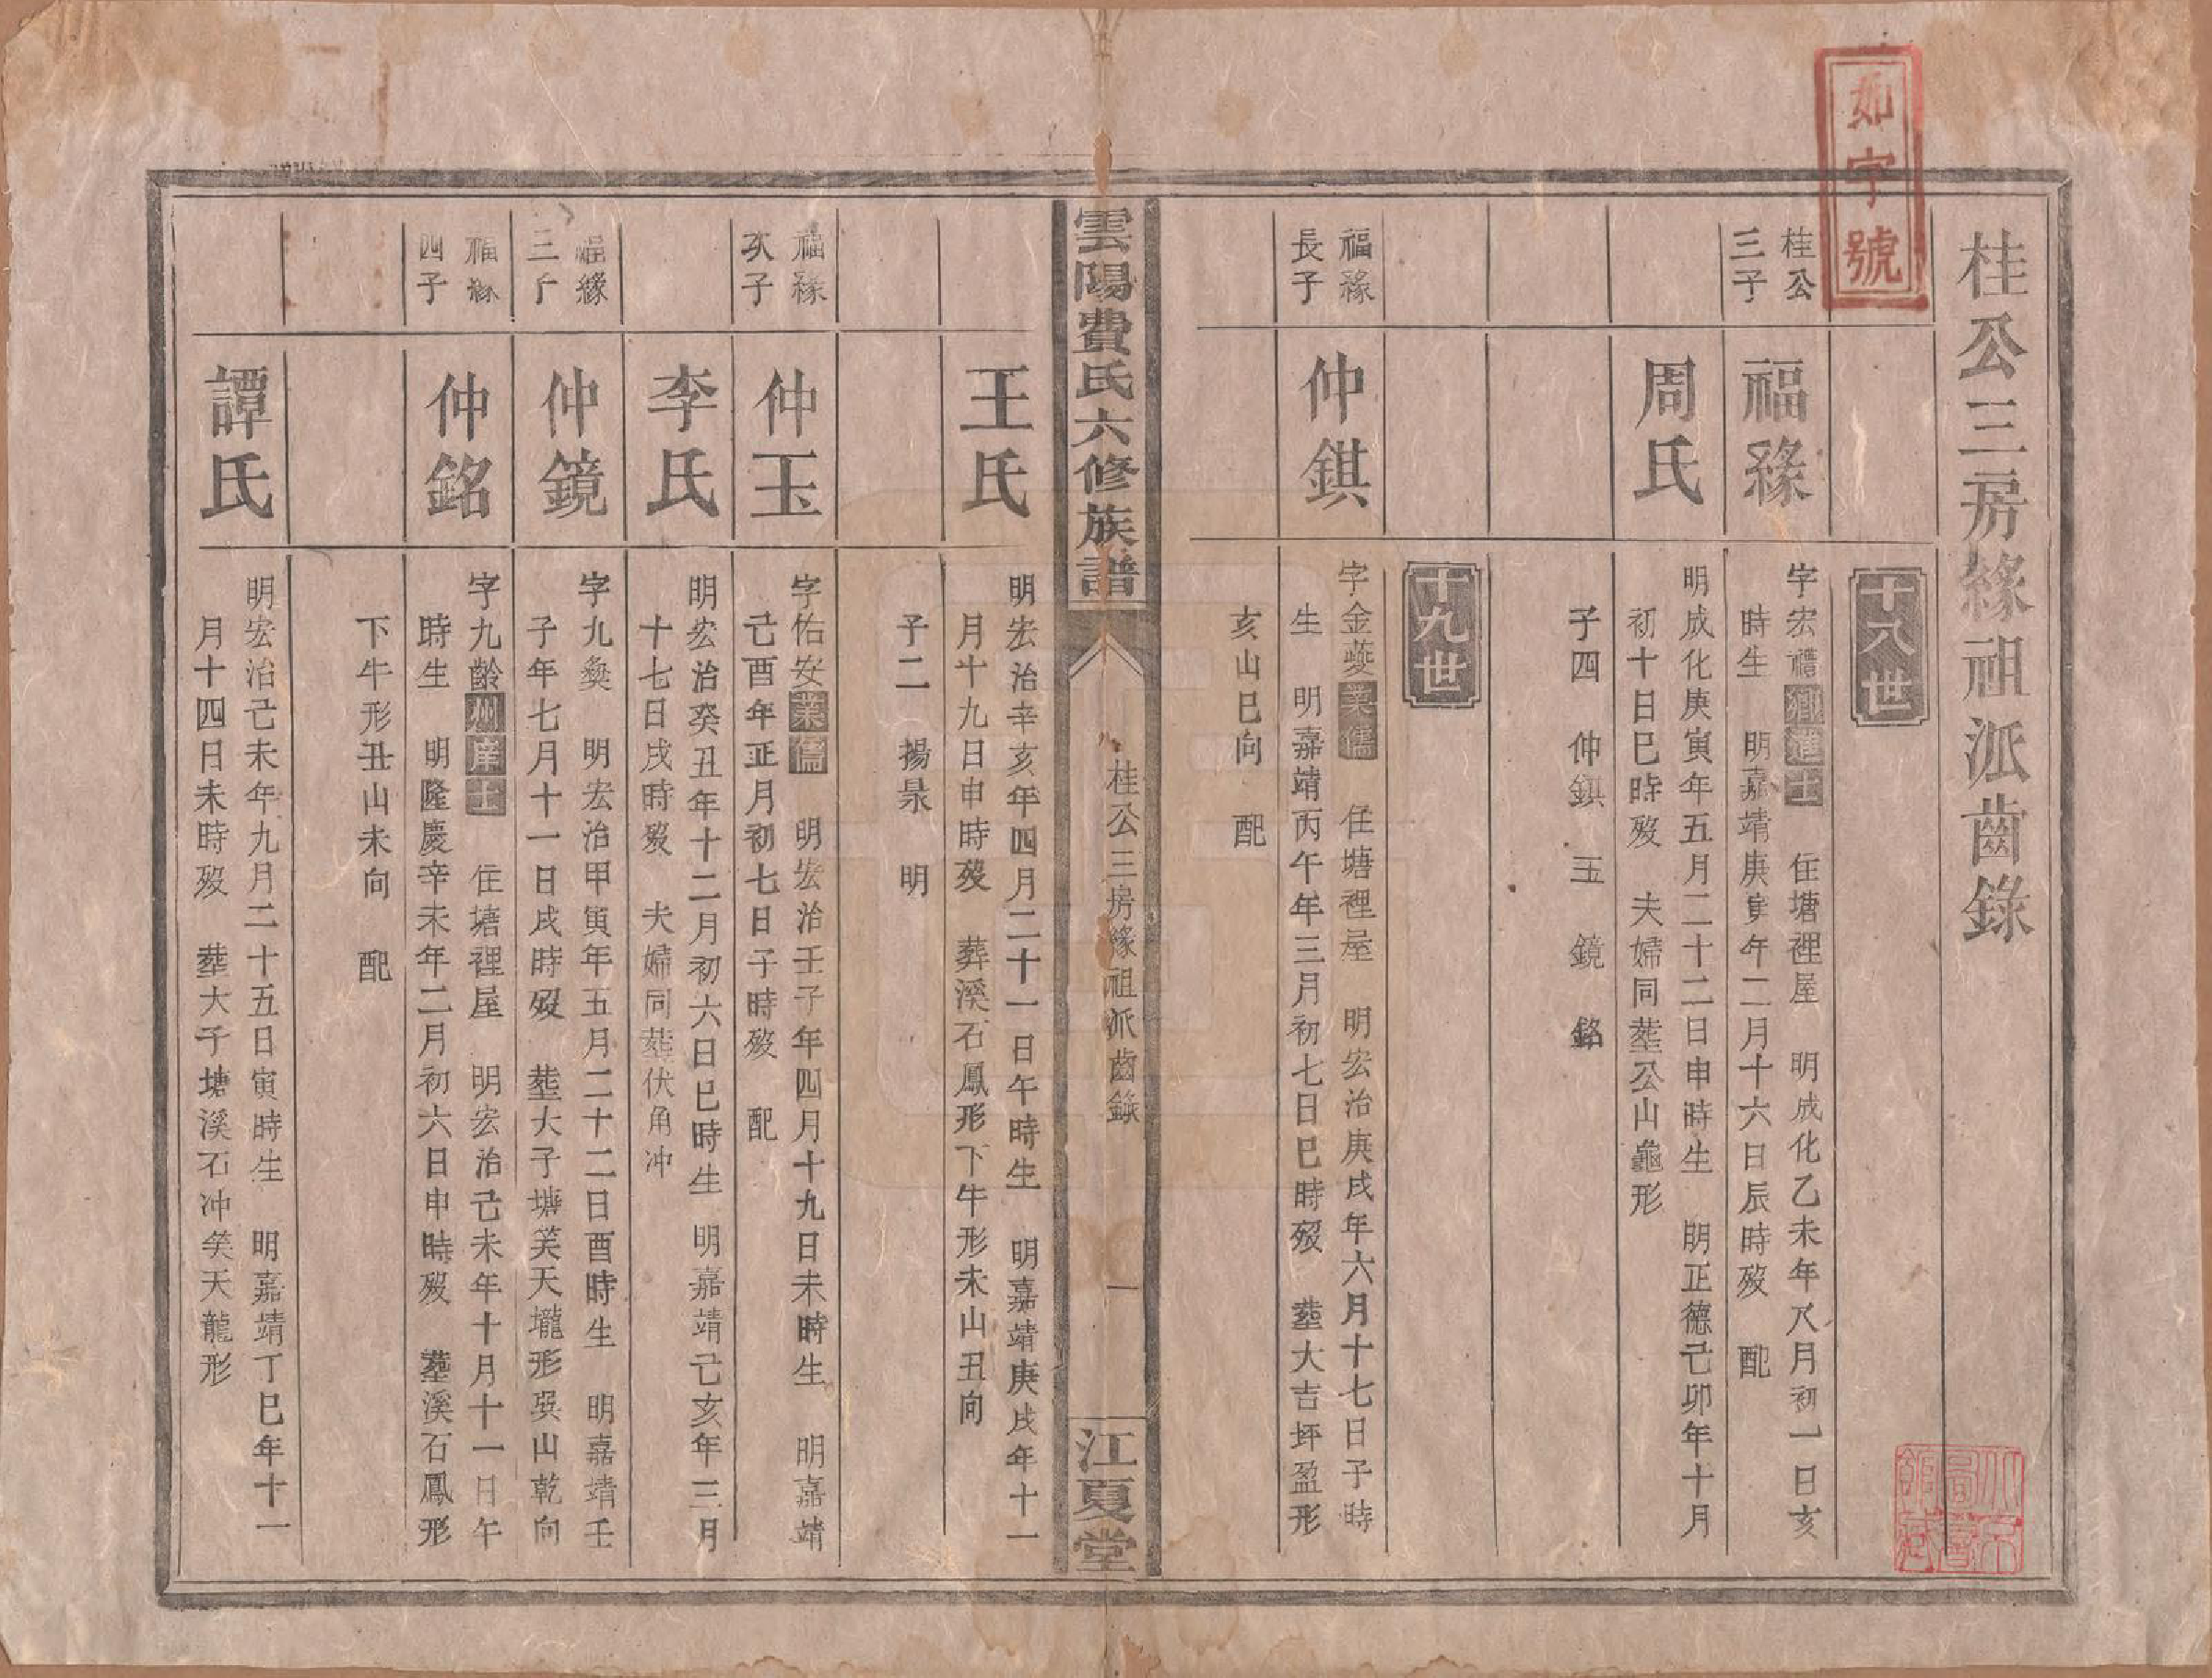 如字號
桂公三房緣祖派齒錄
十八世
桂公
三子
福緣
字宏禮鄉進士 住塘裡屋 明成化乙未年八月初一日亥
時生 明嘉靖庚寅年二月十六日辰時歿 配
周氏
明成化庚寅年五月二十二日申時生 明正德己卯年十月
初十日巳時歿 夫婦同塟公山龜形
子四 仲錤 玉 鏡 銘
十九世
福緣
長子
仲錤
字金蘷業儒 住塘裡屋 明宏治庚戌年六月十七日子時
生 明嘉靖丙午年三月初七日巳時歿 塟大吉坪盈形
亥山巳向 配
雲陽費氏六修族譜
桂公三房緣祖派齒錄
一
江夏堂
王氏
明宏治辛亥年四月二十一日午時生 明嘉靖庚戌年十一
月十九日申時歿 葬溪石鳳形下牛形未山丑向
子二 揚杲 明
福緣
次子
仲玉
字佑安業儒 明宏治壬子年四月十九日未時生 明嘉靖
己酉年正月初七日子時歿 配
李氏
明宏治癸丑年十二月初六日巳時生 明嘉靖己亥年三月
十七日戌時歿 夫婦同塟伏角冲
福緣
三子
仲鏡
字九奠 明宏治甲寅年五月二十二日酉時生 明嘉靖壬
子年七月十一日戌時歿 塟大子塘芙天壠形巽山乾向
福緣
四子
仲銘
字九齡州庠士 住塘裡屋 明宏治己未年十月十一日午
時生 明隆慶辛未年二月初六日申時歿 塟溪石鳳形
下牛形丑山未向 配
譚氏
明宏治己未年九月二十五日寅時生 明嘉靖丁巳年十一
月十四日未時歿 塟大子塘溪石冲矣天龍形